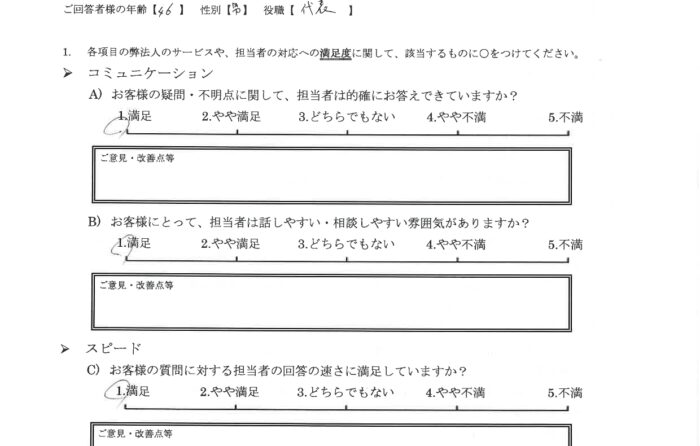 ご回答者様の年齢【46】 性別【男】 役職【 代表 】
1. 各項目の弊法人のサービスや、担当者の対応への満足度に関して、該当するものに○をつけてください。
➤ コミュニケーション
A) お客様の疑問・不明点に関して、担当者は的確にお答えできていますか？
1.満足 2.やや満足 3.どちらでもない 4.やや不満 5.不満
ご意見・改善点等
B) お客様にとって、担当者は話しやすい・相談しやすい雰囲気がありますか？
1.満足 2.やや満足 3.どちらでもない 4.やや不満 5.不満
ご意見・改善点等
➤ スピード
C) お客様の質問に対する担当者の回答の速さに満足していますか？
1.満足 2.やや満足 3.どちらでもない 4.やや不満 5.不満
ご意見・改善点等